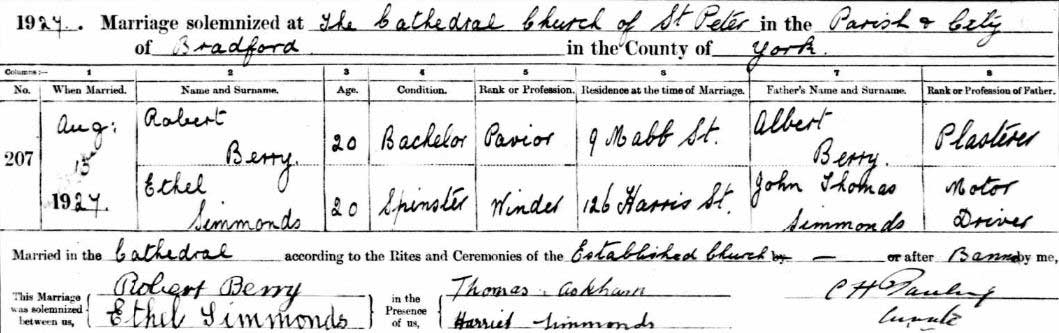 1927. Marriage solemnized at The Cathedral Church of St Peter in the Parish & City
of Bradford in the County of York.
Columns:— 1 2 3 4 5 6 7 8
No. When Married. Name and Surname. Age. Condition. Rank or Profession. Residence at the time of Marriage. Father's Name and Surname. Rank or Profession of Father.
207 Aug: 15 1927. Robert Berry. 20 Bachelor Pavior 9 Mabb St. Albert Berry. Plasterer
Ethel Simmonds 20 Spinster Winder 126 Harris St. John Thomas Simmonds Motor Driver
Married in the Cathedral according to the Rites and Ceremonies of the Established Church by — or after Banns by me,
This Marriage was solemnized between us, Robert Berry in the Presence of us, Thomas Askham
Ethel Simmonds Harriet Simmonds Curate